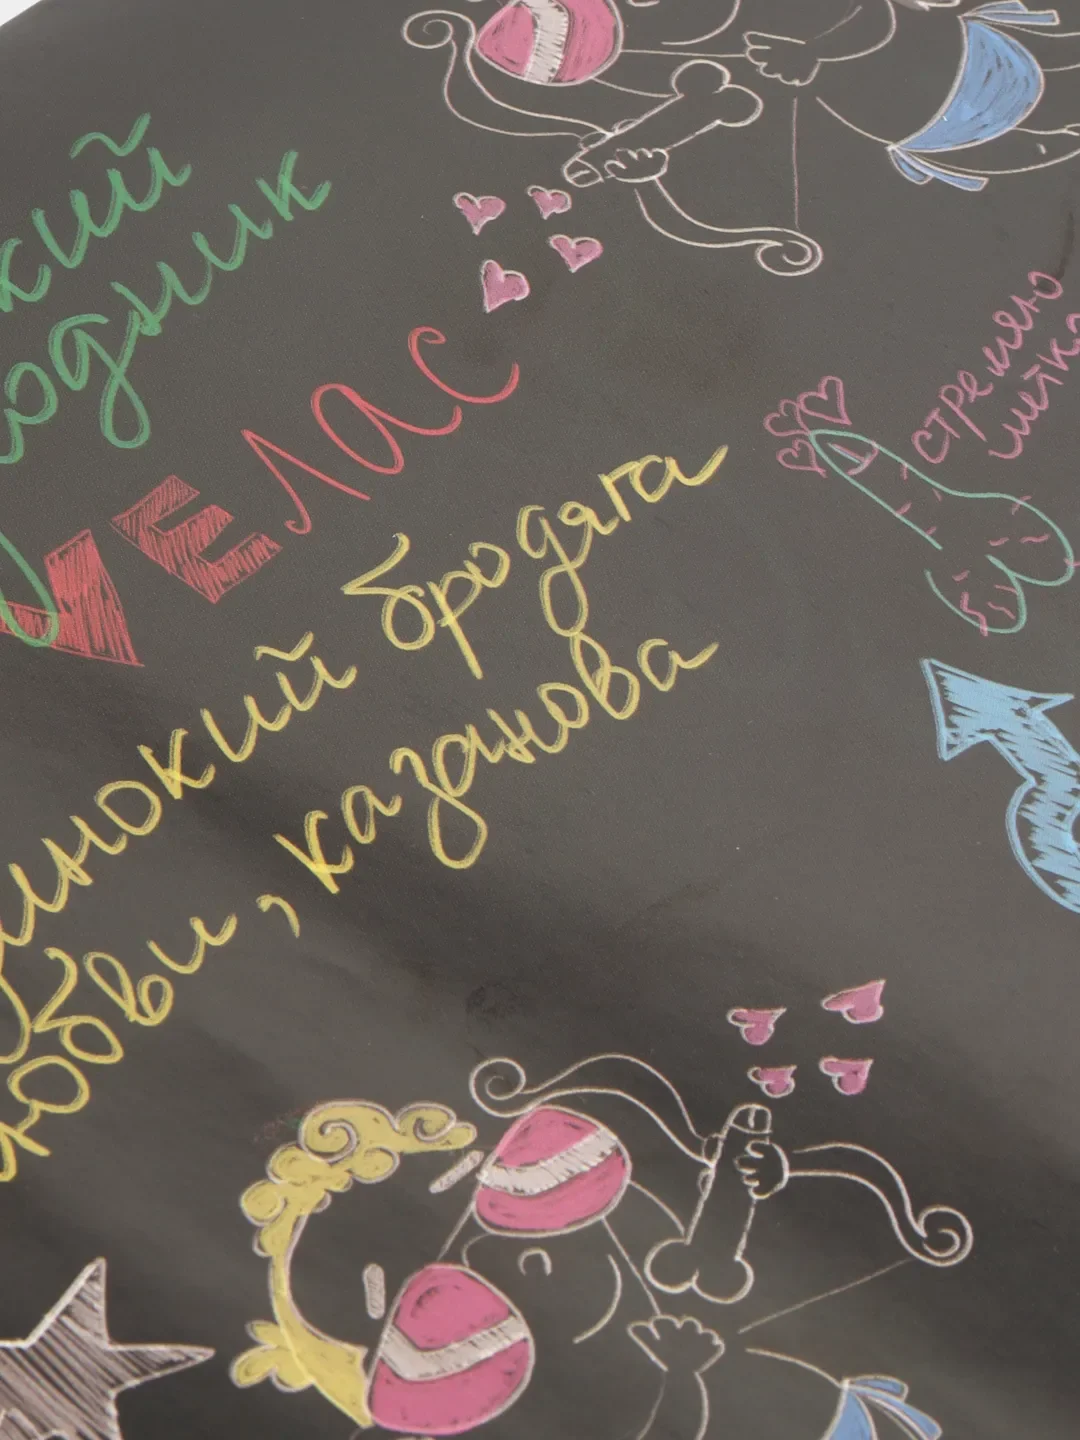 кий
одник
VЕЛАС
инокий бродяга
юбви, казанова
стремлю
шитка